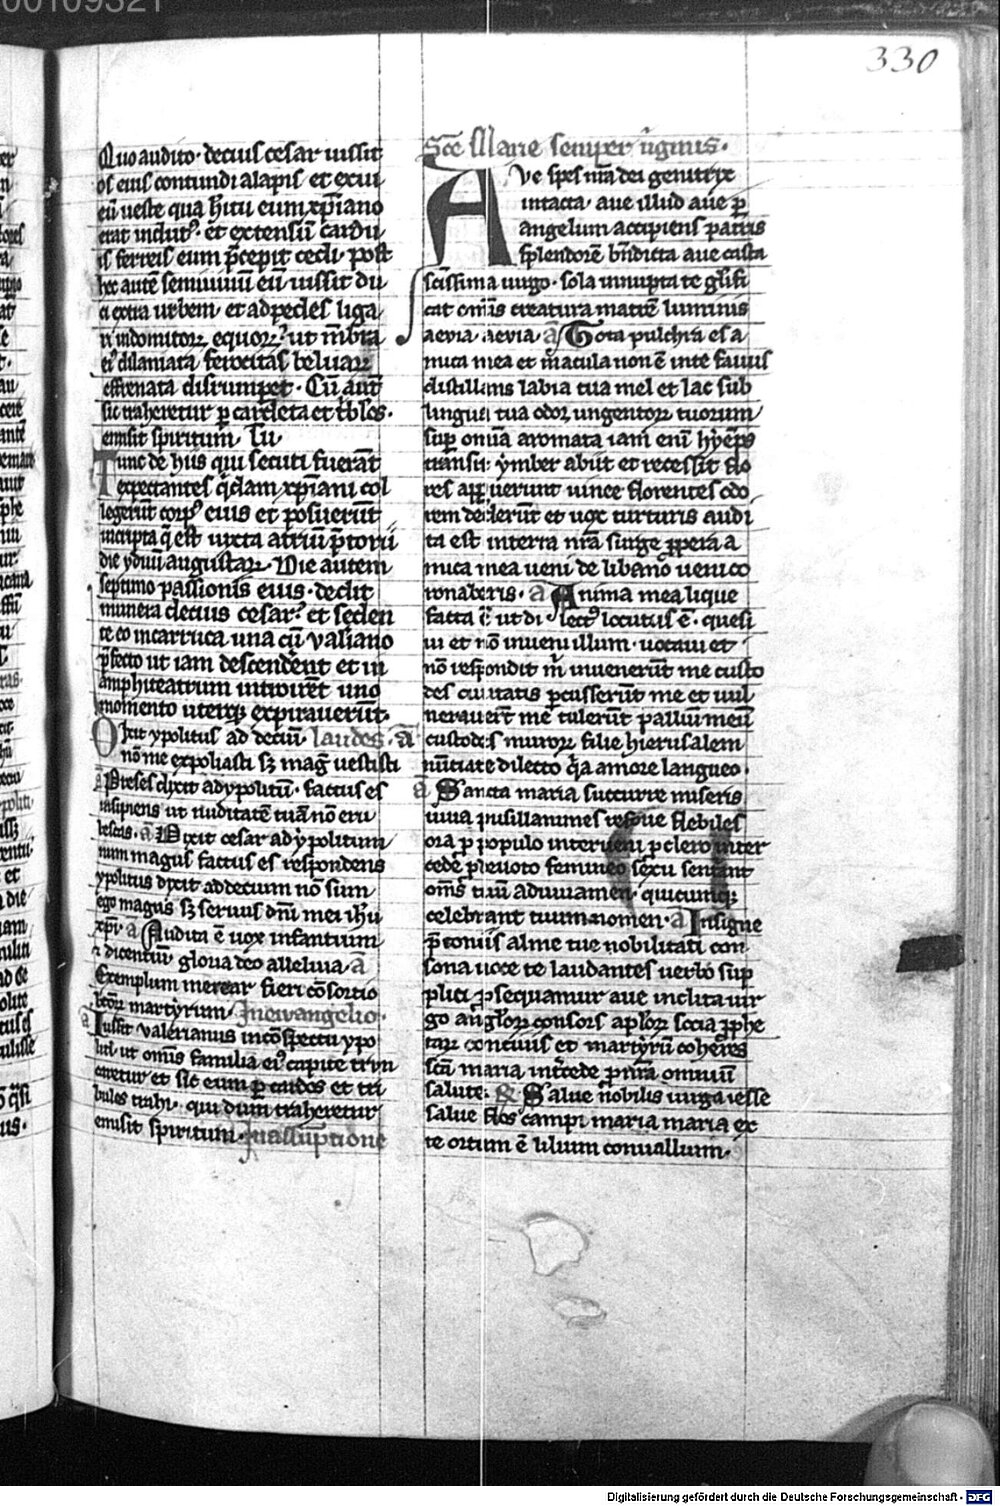 00109321
330
Quo audito· decius cesar iussit
os eius contundi alapis et exui
eū ueste qua h̄itu eum xp̄iano
erat indut9· et extensū cardu
is ferreis eum p̄cepit cedi· post
hec autē semiuiuū eū iussit du
ci extra urbem· et ad pedes liga
ri indomitoꝝ equoꝝ· ut mēbra
ei9 dilaniata ferocitas beluaꝝ
effrenata disrumpet· Cū aūt
sic traheretur p cardeta et t̄bles·
emisit spiritum· Tu·
Tunc de hiis qui secuti fuerāt
expectantes q̇dam xp̄iani col
legerūt corp9 eius et posuerūt
in cripta q̄ est iuxta atriū p̄torii
die yduū augustaꝝ· Die autem
septimo passionis eius· dedit
munera decius cesar· et seden
te eo in carruca una cū valiano
p̄fecto ut iam descendēnt et in
amphiteatrum introirēt uno
momento uterqꝫ expirauerūt·
Dixit ypolitus ad deciū· laudes· a᷑
nō me expoliasti sꝫ mag̃ uestisti
a᷑ Preses dixit ad ypolitū· factus es
insipiens ut nuditatē tuā nō eru
bescas· a᷑ Dixit cesar ad ypolitum
num magus factus es respondens
ypolitus dixit ad decium nō sum
ego magus sꝫ seruus dn̄i mei ih̄u
xp̄i· a᷑ Audita ē uox infantium
dicentiū gloria deo alleluia· a᷑
Exemplum merear fieri cōsortio
b̄toꝝ martyrum· In ewangelio·
a᷑ Iussit valerianus in cōspectu ypo
liti· ut om̄is familia ei9 capite trun
caretur et sic eum p cardos et tri
bules trahi· qui dum traheretur
emisit spiritum· In assūptione
Sc̄e Marie semper u̇ginis·
Ave spes nr̄a dei genitrix
intacta· aue illud aue p
angelum accipiens patris
splendorē bn̄dicta aue casta
sc̄issima uirgo· sola innupta te gl̄ifi
cat om̄is creatura matrē luminis
aevia· aevia· a᷑ Tota pulchra es a
mica mea et macula non ē in te fauus
distillans labia tua mel et lac sub
lingua tua odoꝛ ungentoꝝ tuorum
sup omīa aromata iam enī hyēps
transiit ymber abiit et recessit flo
res appuerunt uinee florentes odo
rem dederūt et uox turturis audi
ta est in terra nr̄a surge ꝓpera a
mica mea ueni de libano ueni co
ronaberis· a᷑ Anima mea lique
facta ē ut dilect9 locutus ē· quesi
ui et nō inueni illum· uocaui et
nō respondit m̄ inuenerūt me custo
des ciuitatis pcusserūt me et uul
nerauert̄ me tulerūt palliū meū
custodes muroꝝ filie hierusalem
nūtiate dilecto q̇a amore langueo·
a᷑ Sancta maria succurre miseris
iuua pusillanimes refoue flebiles
ora p populo interueni p clero inter
cede p deuoto femineo sexu sentiant
om̄s tuū adiuuamen· quicunqꝫ
celebrant tuum nomen· a᷑ Insigne
p̄coniis alme tue nobilitati con
sona uoce te laudantes uerbo sup
plici ꝓsequamur aue inclita uir
go an̄gl̄oꝝ consors apl̄oꝝ socia ꝓphe
taꝝ conciuis et martyrū coheres
sc̄a maria int̄cede p nr̄a omniū
salute· & Salue nobilis uirga iesse
salue flos campi maria maria ex
te ortum ē lilium conuallium·
Digitalisierung gefördert durch die Deutsche Forschungsgemeinschaft - DFG